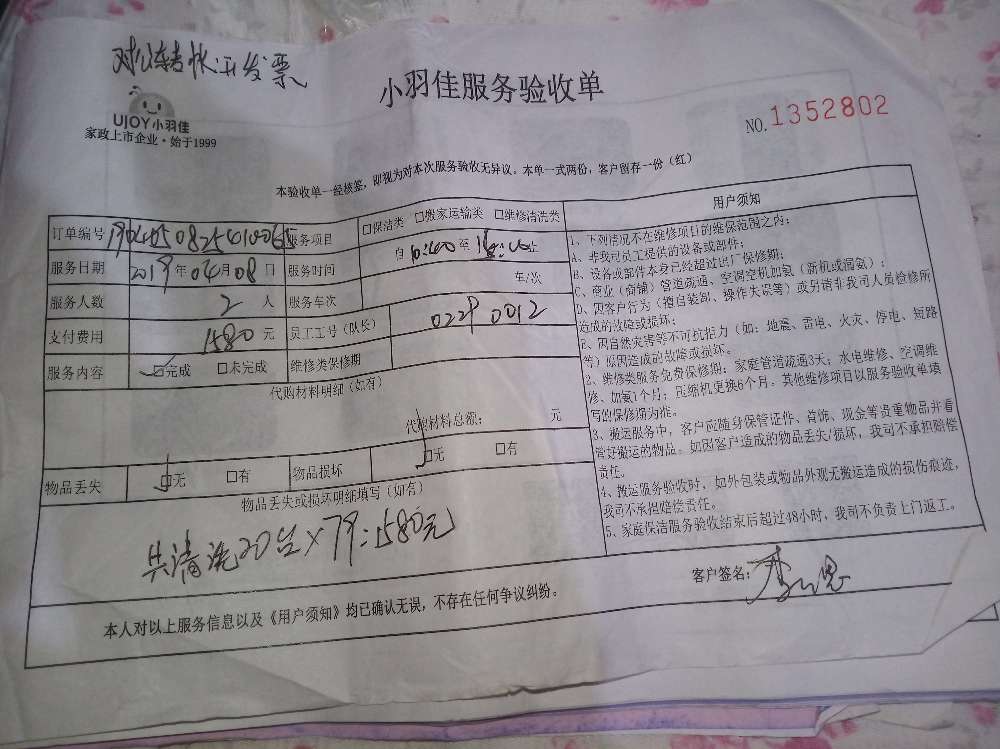 对公转帐开发票
小羽佳服务验收单
UJOY小羽佳
家政上市企业·始于1999
NO.1352802
本验收单一经核签,即视为对本次服务验收无异议。本单一式两份,客户留存一份(红)
订单编号 服务项目 □保洁类 □搬家运输类 □维修清洗类
服务日期 2019年04月08日 服务时间 自 至 止
服务人数 2人 服务车次 车/次
支付费用 1580元 员工工号(队长) 0229 0012
服务内容 □完成 □未完成 维修类保修期
代购材料明细(如有)
代购材料总额: 元
物品丢失 □无 □有 物品损坏 □无 □有
物品丢失或损坏明细填写(如有)
共清洗20台×79=1580元
用户须知
1、下列情况不在维修项目的维保范围之内:
A、非我司员工提供的设备或部件;
B、设备或部件本身已经超过出厂保修期;
C、商业(商铺)管道疏通、空调空机加氨(新机或漏氨);
D、因客户行为(擅自装卸、操作失误等)或另请非我司人员检修所
造成的故障或损坏;
E、因自然灾害等不可抗拒力(如:地震、雷电、火灾、停电、短路
等)原因造成的故障或损坏。
2、维修类服务免费保修期:家庭管道疏通3天;水电维修、空调维
修、加氨1个月;压缩机更换6个月。其他维修项目以服务验收单填
写的保修期为准。
3、搬运服务中,客户应随身保管证件、首饰、现金等贵重物品并看
管好搬运的物品。如因客户造成的物品丢失/损坏,我司不承担赔偿
责任。
4、搬运服务验收时,如外包装或物品外观无搬运造成的损伤痕迹,
我司不承担赔偿责任。
5、家庭保洁服务验收结束后超过48小时,我司不负责上门返工。
客户签名:
本人对以上服务信息以及《用户须知》均已确认无误,不存在任何争议纠纷。